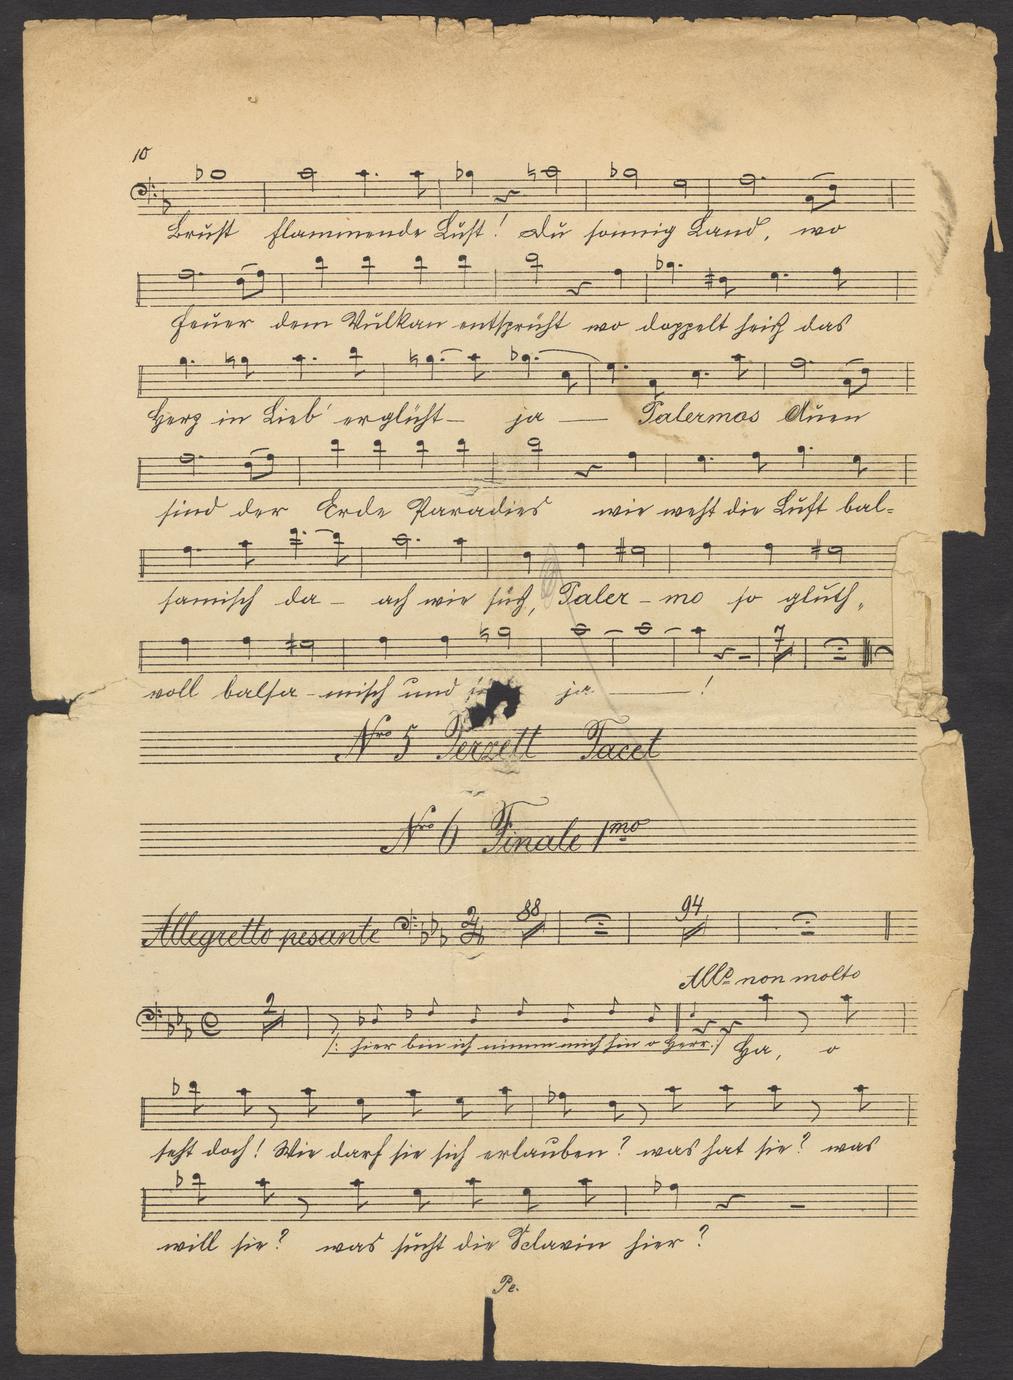 10
Brust flammende Lust! Du sonnig Land, wo
Feuer dem Vulkan entsprüht wo doppelt heiß das
Herz in Lieb' erglüht — ja — Palermos Auen
sind der Erde Paradies wie weht die Luft bal-
samisch da - ach wie süß, Paler - mo so gluth-
7
voll balsa-misch und ja — !
Nro 5 Terzett Tacet
Nro 6 Finale 1mo
Allegretto pesante 2/4 88 94
Allo non molto
2
/: hier bin ich nimm mich hin o Herr :/ Ha, o
seht doch! Wie darf sie sich erlauben? was hat sie? was
will sie? was sucht die Sclavin hier?
Pe.